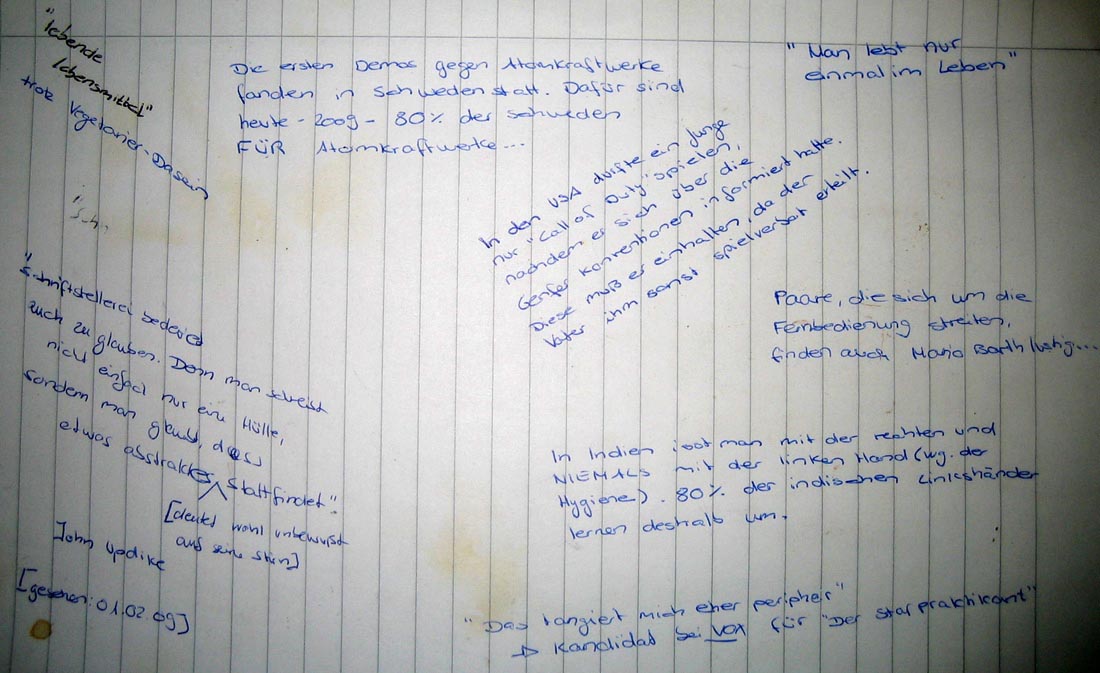 "lebende
lebensmittel"
trotz Vegetarier-Dasein
Die ersten Demos gegen Atomkraftwerke
fanden in Schweden statt. Dafür sind
heute - 2009 - 80% der schweden
FÜR Atomkraftwerke...
"Man lebt nur
einmal im Leben"
In den USA dürfte ein Junge
nur "Call of Duty" spielen,
nachdem er sich über die
Genfer Konventionen informiert hatte.
Diese muß er einhalten, da der
Vater ihm sonst spielverbot erteilt.
"Schriftstellerei bedeutet
auch zu glauben. Denn man schreibt
nicht einfach nur eine Hülle,
sondern man glaubt, dass
etwas abstraktes stattfindet".
[deutet wohl unbewusst
auf seine Stirn]
John Updike
[gesehen: 01.02.09]
Paare, die sich um die
Fernbedienung streiten,
finden auch Mario Barth lustig...
In Indien isst man mit der rechten und
NIEMALS mit der linken Hand (wg. der
Hygiene). 80% der indischen Linkshänder
lernen deshalb um.
"Das tangiert mich eher peripher"
→ Kandidat bei VOX für "Der Starpraktikant"